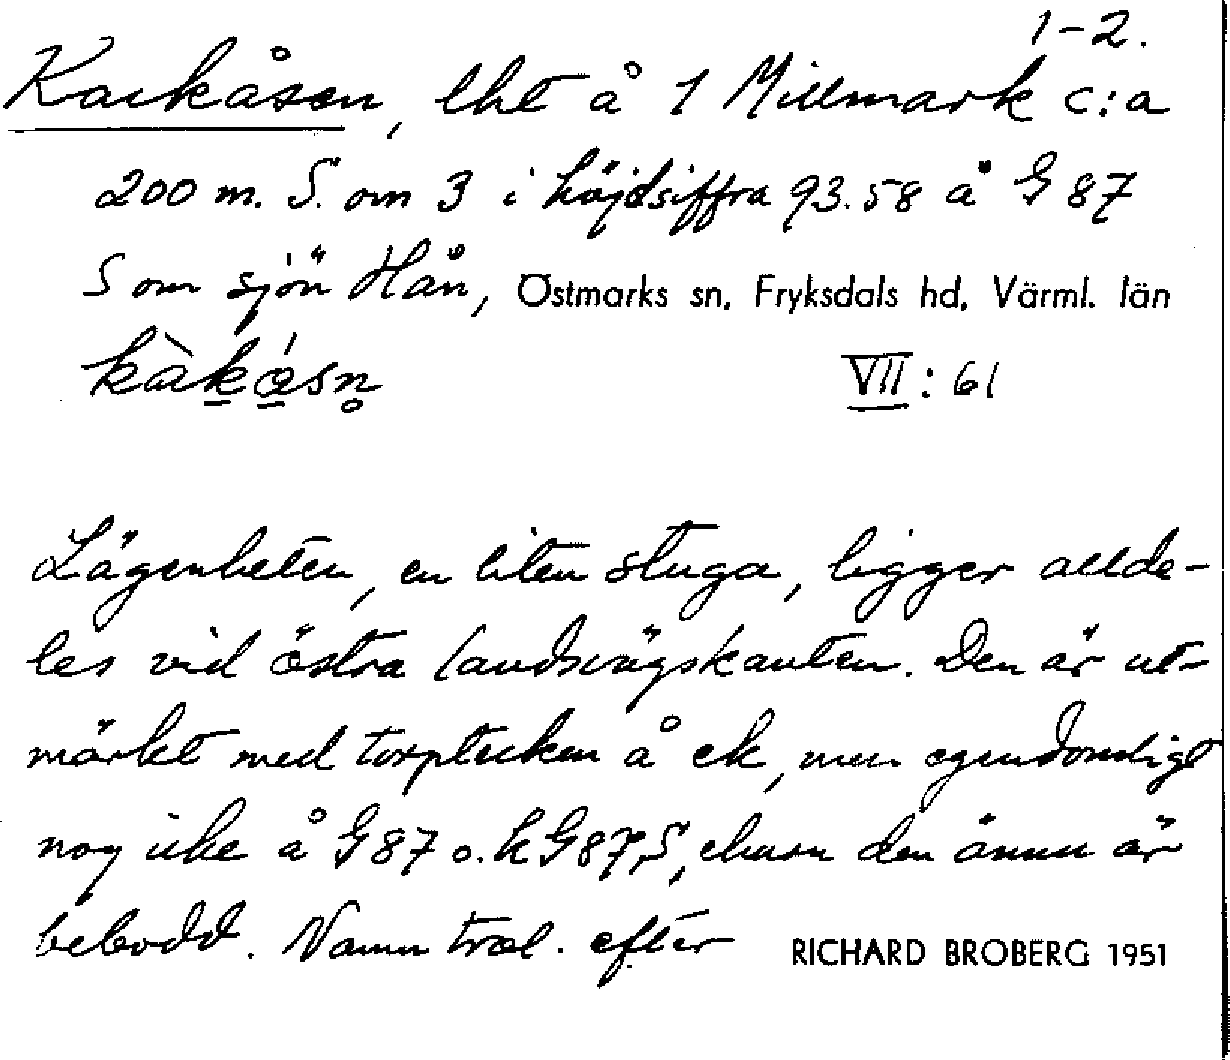 1-2.
Karkåsen, lht å 1 Millmark c:a
200 m. S. om 3 i höjdsiffra 93.58 å G 87
S om sjön Hån, Östmarks sn, Fryksdals hd, Värml. län
VII: 61
Lägenheten, en liten stuga, ligger allde-
les vid östra landsvägskanten. Den är ut-
märkt med torptecken å ek, men egendomligt
nog icke å G 87 o. k G87,S, ehuru den ännu är
bebodd. Namn trol. efter RICHARD BROBERG 1951